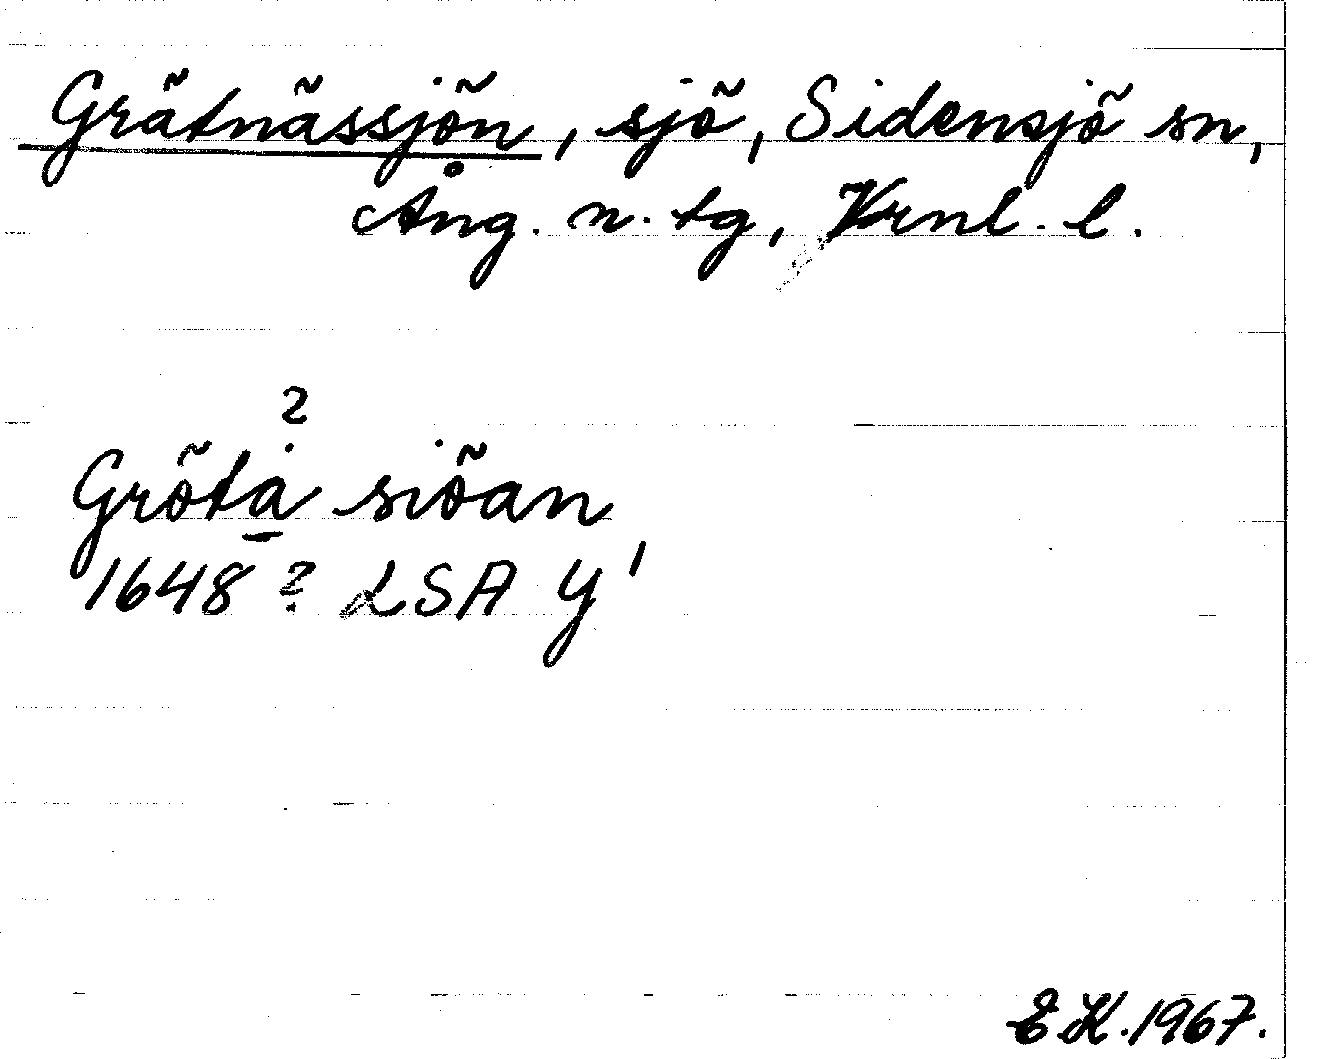 Grätnässjön, sjö, Sidensjö sn,
Ång. n. tg, Vrnl. l.
?
Gröta siöan
1648? LSA Y¹
EK. 1967.